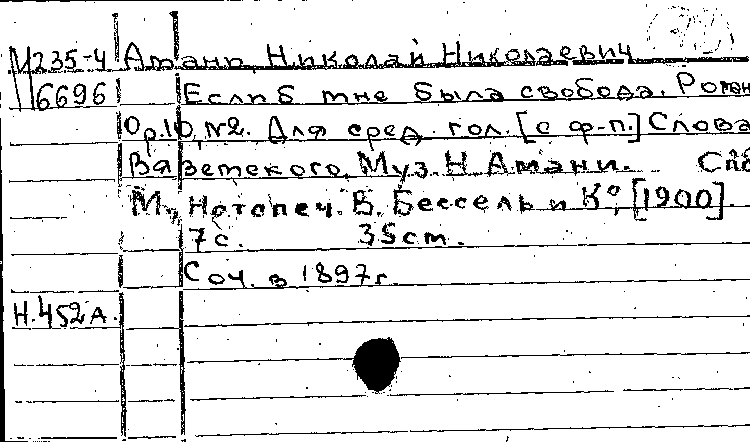 М235-4 Амани, Николай Николаевич
6696 Еслиб мне была свобода. Роман
Op.10, №2. Для сред. гол. [с ф-п.] Слова
Вяземского, Муз. Н. Амани. Спб
М., Нотопеч. В. Бессель и К°, [1900].
7с. 35cm.
Соч. в 1897г.
Н.452А.